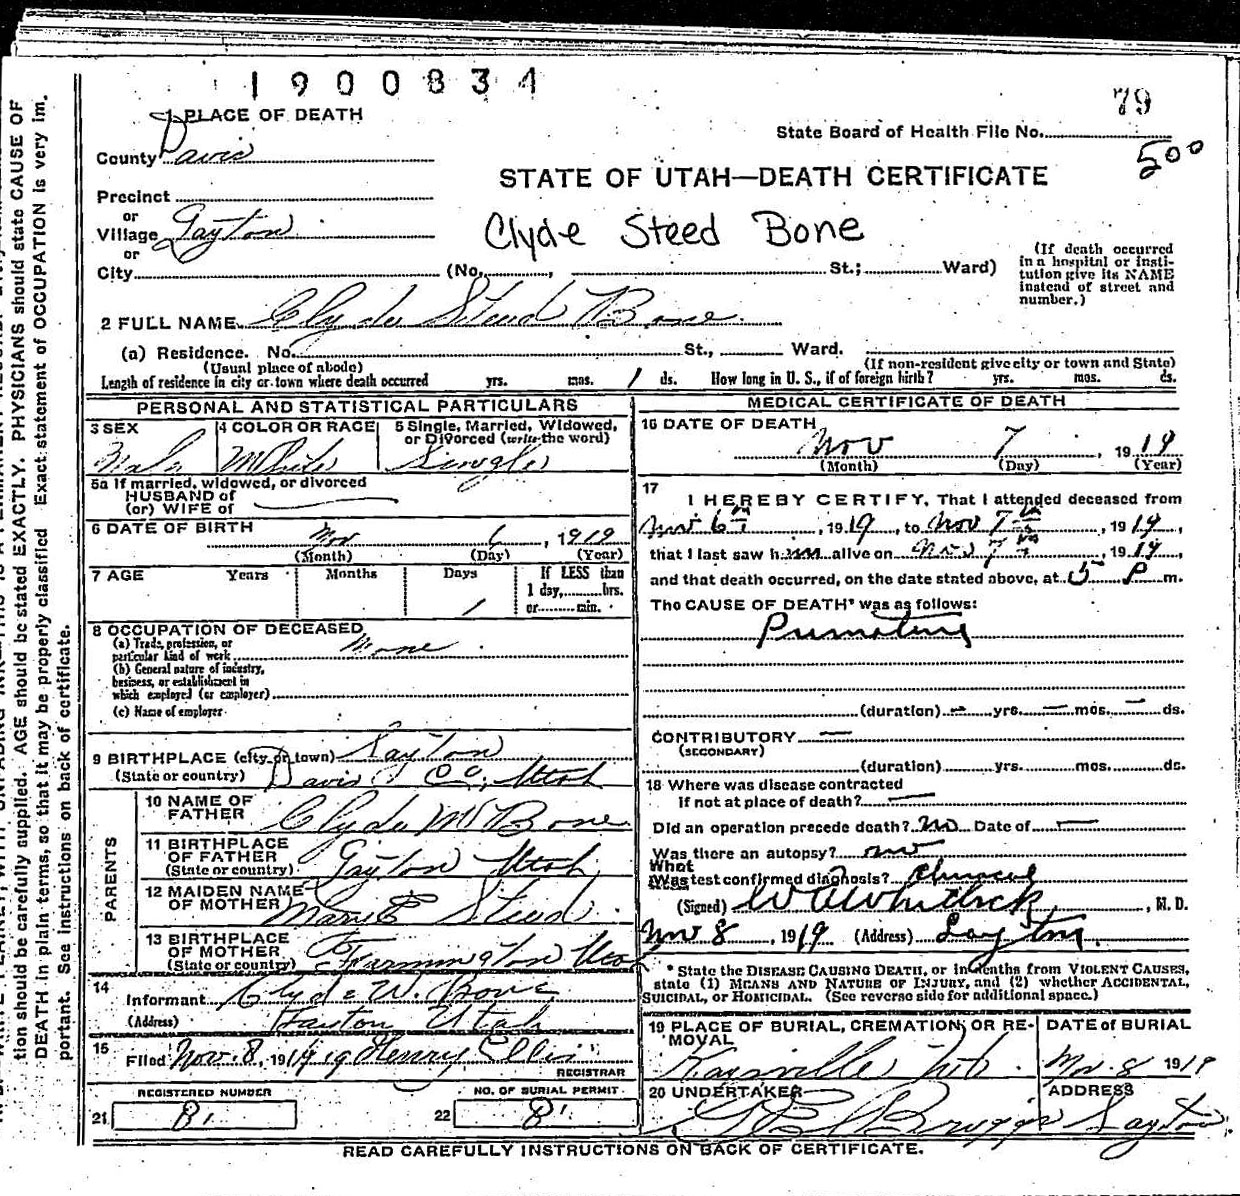 1900834
79
1 PLACE OF DEATH
State Board of Health File No.
500
County Davis
STATE OF UTAH—DEATH CERTIFICATE
Precinct
or
Village Layton
Clyde Steed Bone
or
City (No. , St.; Ward)
(If death occurred
in a hospital or insti-
tution give its NAME
instead of street and
number.)
2 FULL NAME Clyde Steed Bone
(a) Residence. No. St., Ward.
(Usual place of abode) (If non-resident give city or town and State)
Length of residence in city or town where death occurred yrs. mos. 1 ds. How long in U. S., if of foreign birth? yrs. mos. ds.
PERSONAL AND STATISTICAL PARTICULARS
3 SEX 4 COLOR OR RACE 5 Single, Married, Widowed,
or Divorced (write the word)
Male White Single
5a If married, widowed, or divorced
HUSBAND of
(or) WIFE of
6 DATE OF BIRTH Nov 6, 1919
(Month) (Day) (Year)
7 AGE Years Months Days If LESS than
1 day, hrs.
1 or min.
8 OCCUPATION OF DECEASED
(a) Trade, profession, or
particular kind of work None
(b) General nature of industry,
business, or establishment in
which employed (or employer)
(c) Name of employer
9 BIRTHPLACE (city or town) Layton
(State or country) Davis Co, Utah
PARENTS
10 NAME OF
FATHER Clyde W Bone
11 BIRTHPLACE
OF FATHER
(State or country) Layton Utah
12 MAIDEN NAME
OF MOTHER Marie Steed
13 BIRTHPLACE
OF MOTHER
(State or country) Farmington Utah
14
Informant Clyde W. Bone
(Address) Layton Utah
15
Filed Nov. 8, 1919 Henry Ellis
REGISTRAR
REGISTERED NUMBER NO. OF BURIAL PERMIT
21 8 22 8
MEDICAL CERTIFICATE OF DEATH
16 DATE OF DEATH
Nov 7, 1919
(Month) (Day) (Year)
17
I HEREBY CERTIFY, That I attended deceased from
Nov 6th, 1919, to Nov 7th, 1919,
that I last saw him alive on Nov 7th, 1919,
and that death occurred, on the date stated above, at 5 P m.
The CAUSE OF DEATH* was as follows:
Premature
(duration) – yrs. – mos. – ds.
CONTRIBUTORY –
(SECONDARY)
(duration) yrs. mos. ds.
18 Where was disease contracted
if not at place of death? –
Did an operation precede death? No Date of –
Was there an autopsy? no
What
test confirmed diagnosis? Clinical
(Signed) W A Whitlock, M. D.
Nov 8, 1919 (Address) Layton
* State the DISEASE CAUSING DEATH, or in deaths from VIOLENT CAUSES,
state (1) MEANS AND NATURE OF INJURY, and (2) whether ACCIDENTAL,
SUICIDAL, or HOMICIDAL. (See reverse side for additional space.)
19 PLACE OF BURIAL, CREMATION, OR RE-
MOVAL DATE of BURIAL
Kaysville Nov 8 1919
20 UNDERTAKER ADDRESS
Briggs Layton
READ CAREFULLY INSTRUCTIONS ON BACK OF CERTIFICATE.
tion should be carefully supplied. AGE should be stated EXACTLY. PHYSICIANS should state CAUSE OF
DEATH in plain terms, so that it may be properly classified Exact statement of OCCUPATION is very im-
portant. See instructions on back of certificate.